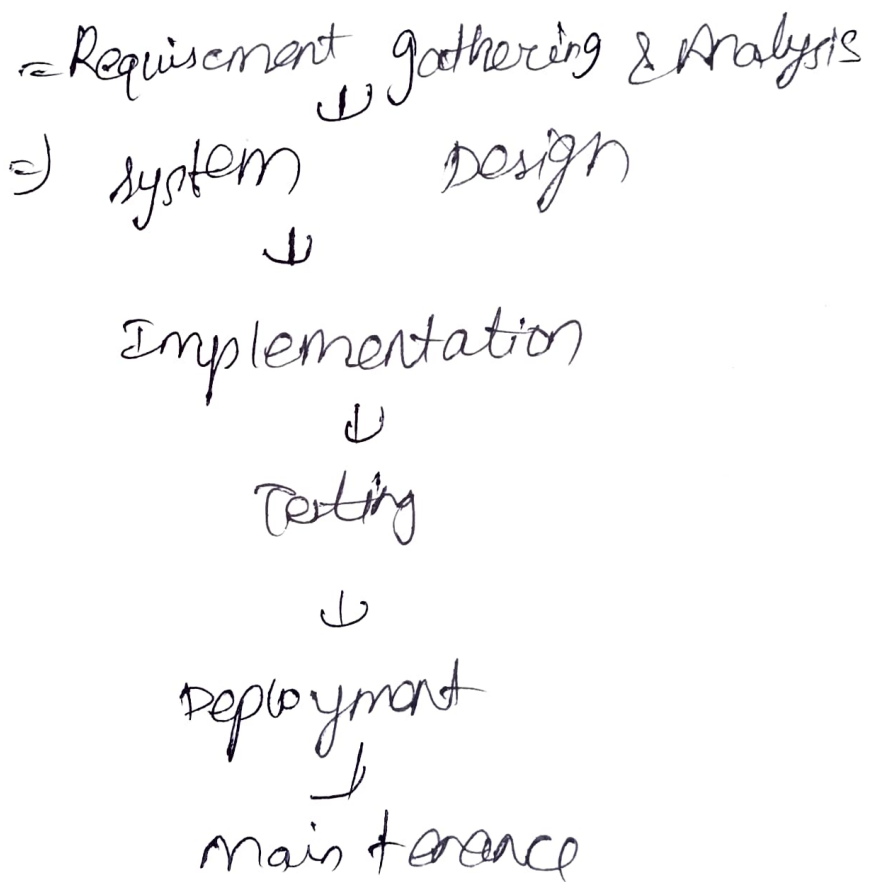 = Requirement gathering & Analysis
↓
⇒ System Design
↓
Implementation
↓
Testing
↓
Deployment
↓
Maintenance